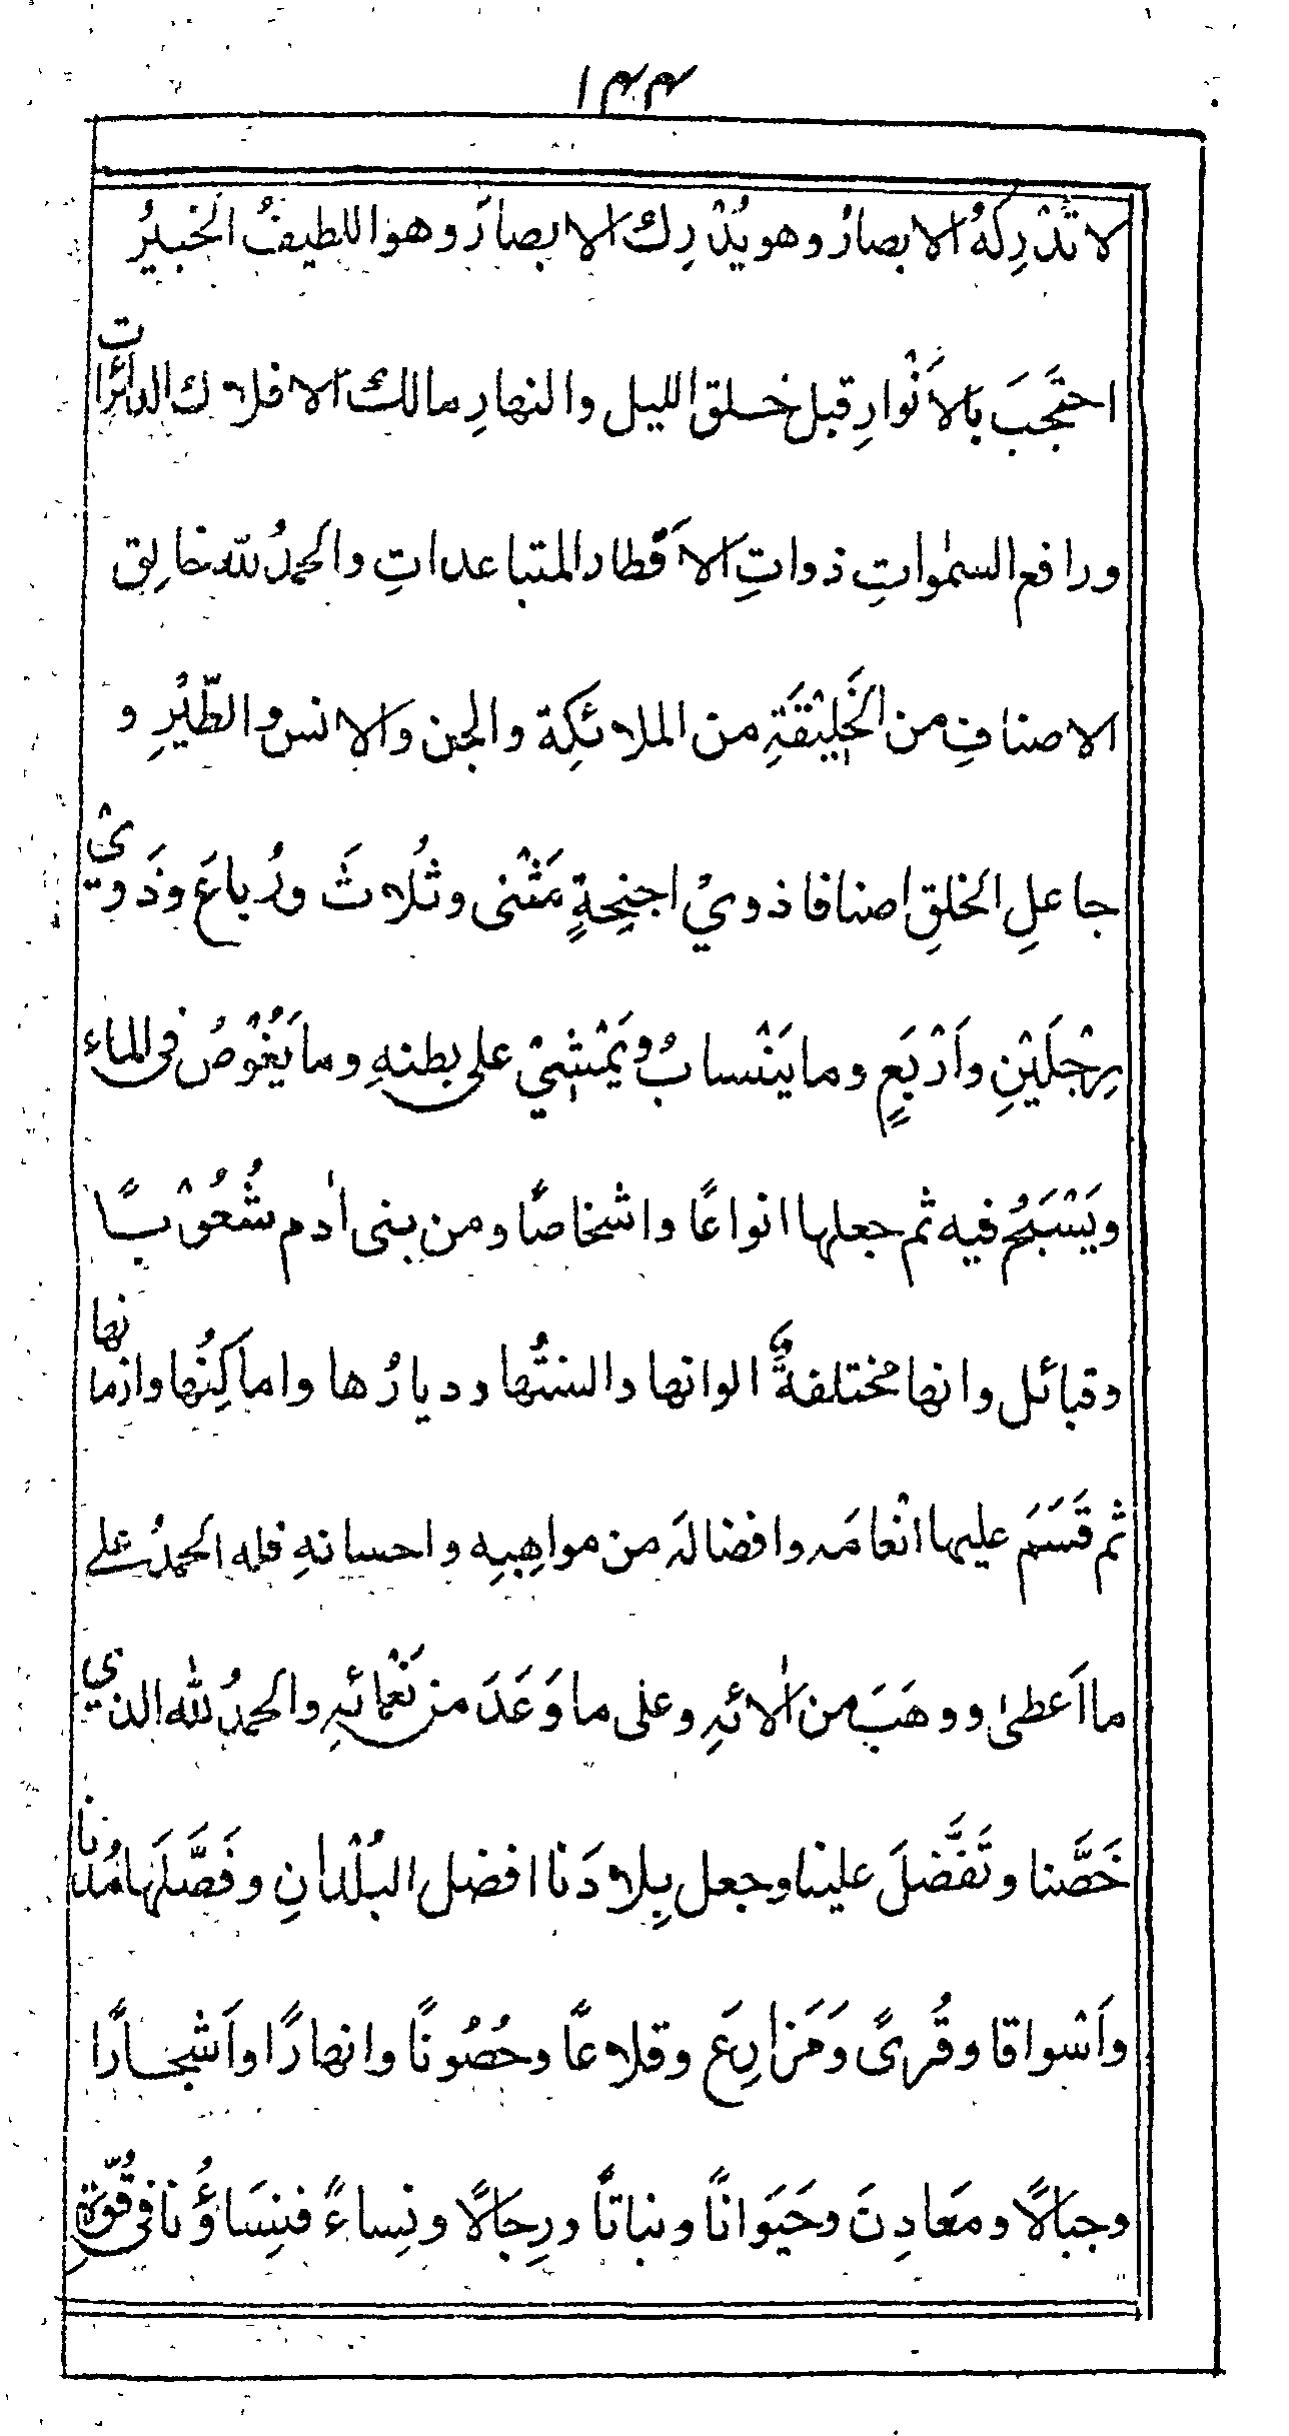 ١٤٤
لا تُدْرِكهُ الابصارُ وهو يُدْرِك الابصارَ وهو اللطيفُ الخبيرُ
احتَجَبَ بالأَنْوارِ قبل خلق الليل والنهارِ مالك الافلاك الدائرات
ورافع السمٰواتِ ذواتِ الاَقطار المتباعداتِ والحمدُ لله خالِق
الاصنافِ من الخَلِيْقَةِ من الملائكِة والجن والانس والطَّيْرِ و
جاعلِ الخلقِ اصنافا ذويْ اجنِحةٍ مَثْنى وثُلاثَ ورُباعَ وذَويْ
رِجْلَيْنِ واَرْبَعٍ وما يَنْسابُ ويَمْشِيْ على بطنهِ وما يَغُوْصُ في الماء
ويَسْبَحُ فيه ثم جعلها انواعًا واشخاصًا ومن بنى اٰدم شُعُوْبًا
وقبائل وانها مختلفةً الوانها والسنتُها وديارُها واماكِنُها وازمانها
ثم قَسَمَ عليها انْعامَه وافضالَه من مواهِبِه واحسانهِ فله الحمدُ على
ما اَعطىٰ ووهَبَ من اٰلائهِ وعلى ما وَعَدَ من نَعْمائهِ والحمدُ لله الذي
خَصَّنا وتَفَضَّلَ علينا وجعل بِلادَنا افضل البُلْدانِ وفَصَّلَها مُدنا
واَسْواقا وقُرىً وَمَزارِعَ وقلاعًا وحُصُونًا وانهارًا واَشجارًا
وجبالًا ومَعادِنَ وحَيَوانًا ونباتًا ورِجالًا ونِساءً فنِسَاؤُنا في قُوّة